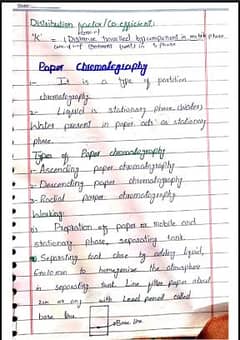 Distribution factor/Co-efficient:
'K' = Distance travelled by component in mobile phase
Paper Chromatography
1- It is a type of partition
chromatography.
2- Liquid is stationary phase (water)
Water present in paper acts as stationary
phase.
Types of Paper chromatography
1- Ascending paper chromatography
2- Descending paper chromatography
3- Radial paper chromatography
Working:
Prepration of paper mobile and
stationary phase, separating tank.
Separating tank close by adding liquid,
to homogenize the atmosphere
in separating tank. Line filter paper about
2cm or on with Lead pencil called
base line.
Base line